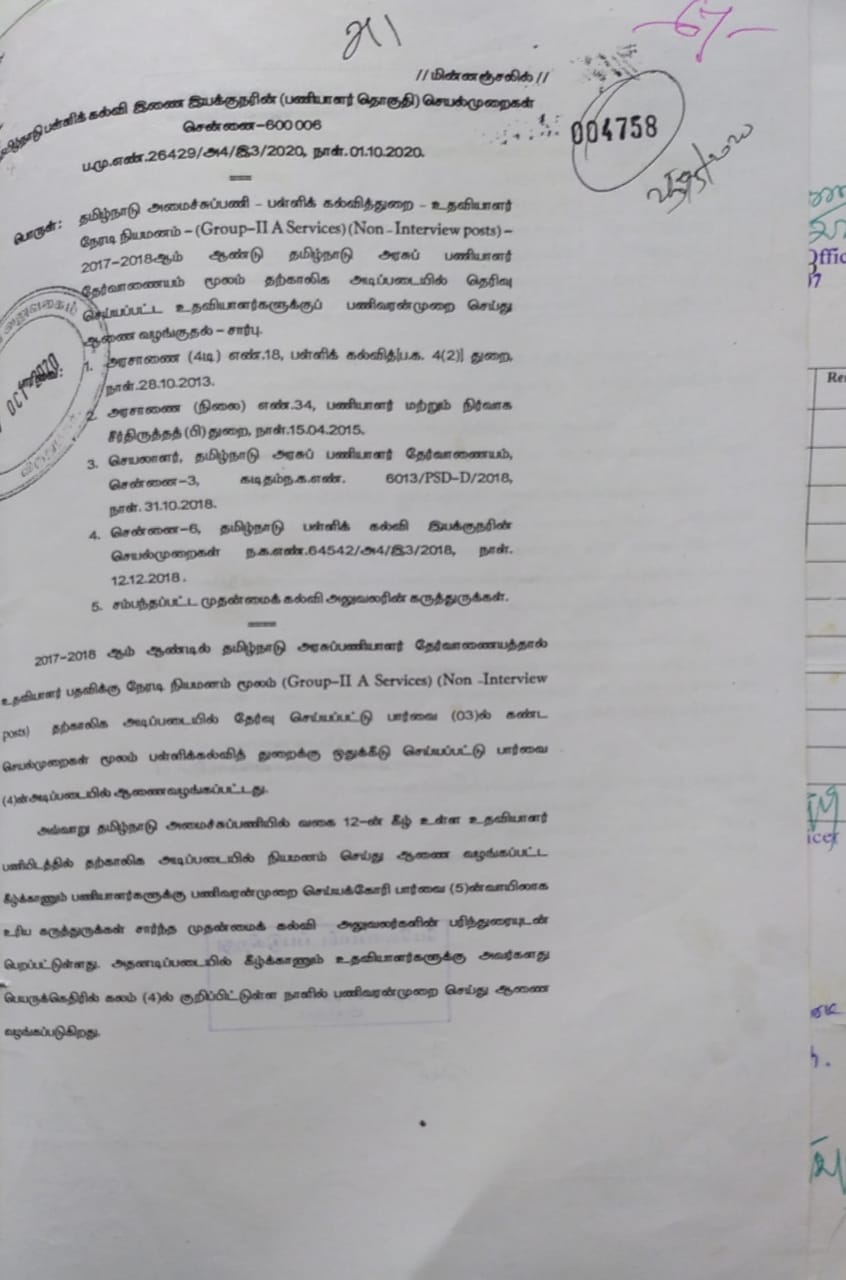 // மின்னஞ்சலில் //
தமிழ்நாடு பள்ளிக் கல்வி இணை இயக்குநரின் (பணியாளர் தொகுதி) செயல்முறைகள்
சென்னை-600 006
004758
ப.மு.எண்.26429/அ4/இ3/2020, நாள்.01.10.2020.
===
பொருள்: தமிழ்நாடு அமைச்சுப்பணி - பள்ளிக் கல்வித்துறை - உதவியாளர்
நேரடி நியமனம் – (Group-II A Services) (Non -Interview posts) –
2017-2018ஆம் ஆண்டு தமிழ்நாடு அரசுப் பணியாளர்
தேர்வாணையம் மூலம் தற்காலிக அடிப்படையில் தெரிவு
செய்யப்பட்ட உதவியாளர்களுக்குப் பணிவரன்முறை செய்து
ஆணை வழங்குதல் – சார்பு.
1. அரசாணை (4டி) எண்.18, பள்ளிக் கல்வித்[ப.க. 4(2)] துறை,
நாள்.28.10.2013.
2. அரசாணை (நிலை) எண்.34, பணியாளர் மற்றும் நிர்வாக
சீர்திருத்தத் (பி) துறை, நாள்.15.04.2015.
3. செயலாளர், தமிழ்நாடு அரசுப் பணியாளர் தேர்வாணையம்,
சென்னை-3, கடிதம்ந.க.எண். 6013/PSD-D/2018,
நாள். 31.10.2018.
4. சென்னை-6, தமிழ்நாடு பள்ளிக் கல்வி இயக்குநரின்
செயல்முறைகள் ந.க.எண்.64542/அ4/இ3/2018, நாள்.
12.12.2018.
5. சம்பந்தப்பட்ட முதன்மைக் கல்வி அலுவலரின் கருத்துருக்கள்.
===
2017-2018 ஆம் ஆண்டில் தமிழ்நாடு அரசுப்பணியாளர் தேர்வாணையத்தால்
உதவியாளர் பதவிக்கு நேரடி நியமனம் மூலம் (Group-II A Services) (Non -Interview
posts) தற்காலிக அடிப்படையில் தேர்வு செய்யப்பட்டு பார்வை (03)ல் கண்ட
செயல்முறைகள் மூலம் பள்ளிக்கல்வித் துறைக்கு ஒதுக்கீடு செய்யப்பட்டு பார்வை
(4)ன்அடிப்படையில் ஆணைவழங்கப்பட்டது.
அவ்வாறு தமிழ்நாடு அமைச்சுப்பணியில் வகை 12-ன் கீழ் உள்ள உதவியாளர்
பணியிடத்தில் தற்காலிக அடிப்படையில் நியமனம் செய்து ஆணை வழங்கப்பட்ட
கீழ்க்காணும் பணியாளர்களுக்கு பணிவரன்முறை செய்யக்கோரி பார்வை (5)ன்வாயிலாக
உரிய கருத்துருக்கள் சார்ந்த முதன்மைக் கல்வி அலுவலர்களின் பரிந்துரையுடன்
பெறப்பட்டுள்ளது. அதனடிப்படையில் கீழ்க்காணும் உதவியாளர்களுக்கு அவர்களது
பெயருக்கெதிரில் கலம் (4)ல் குறிப்பிட்டுள்ள நாளில் பணிவரன்முறை செய்து ஆணை
வழங்கப்படுகிறது.